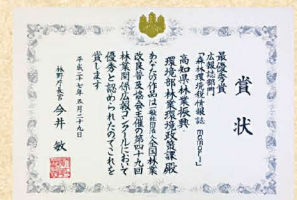 賞状
最優秀賞
広報誌部門
「森林環境税情報誌 mamori」
高知県林業振興・
環境部林業環境政策課殿
あなたの作品は一般社団法人全国林業
改良普及協会主催の第四十九回
林業関係広報コンクールにおいて
優秀と認められたのでこれを
賞します
平成二十七年五月二十九日
林野庁長官 今井 敏